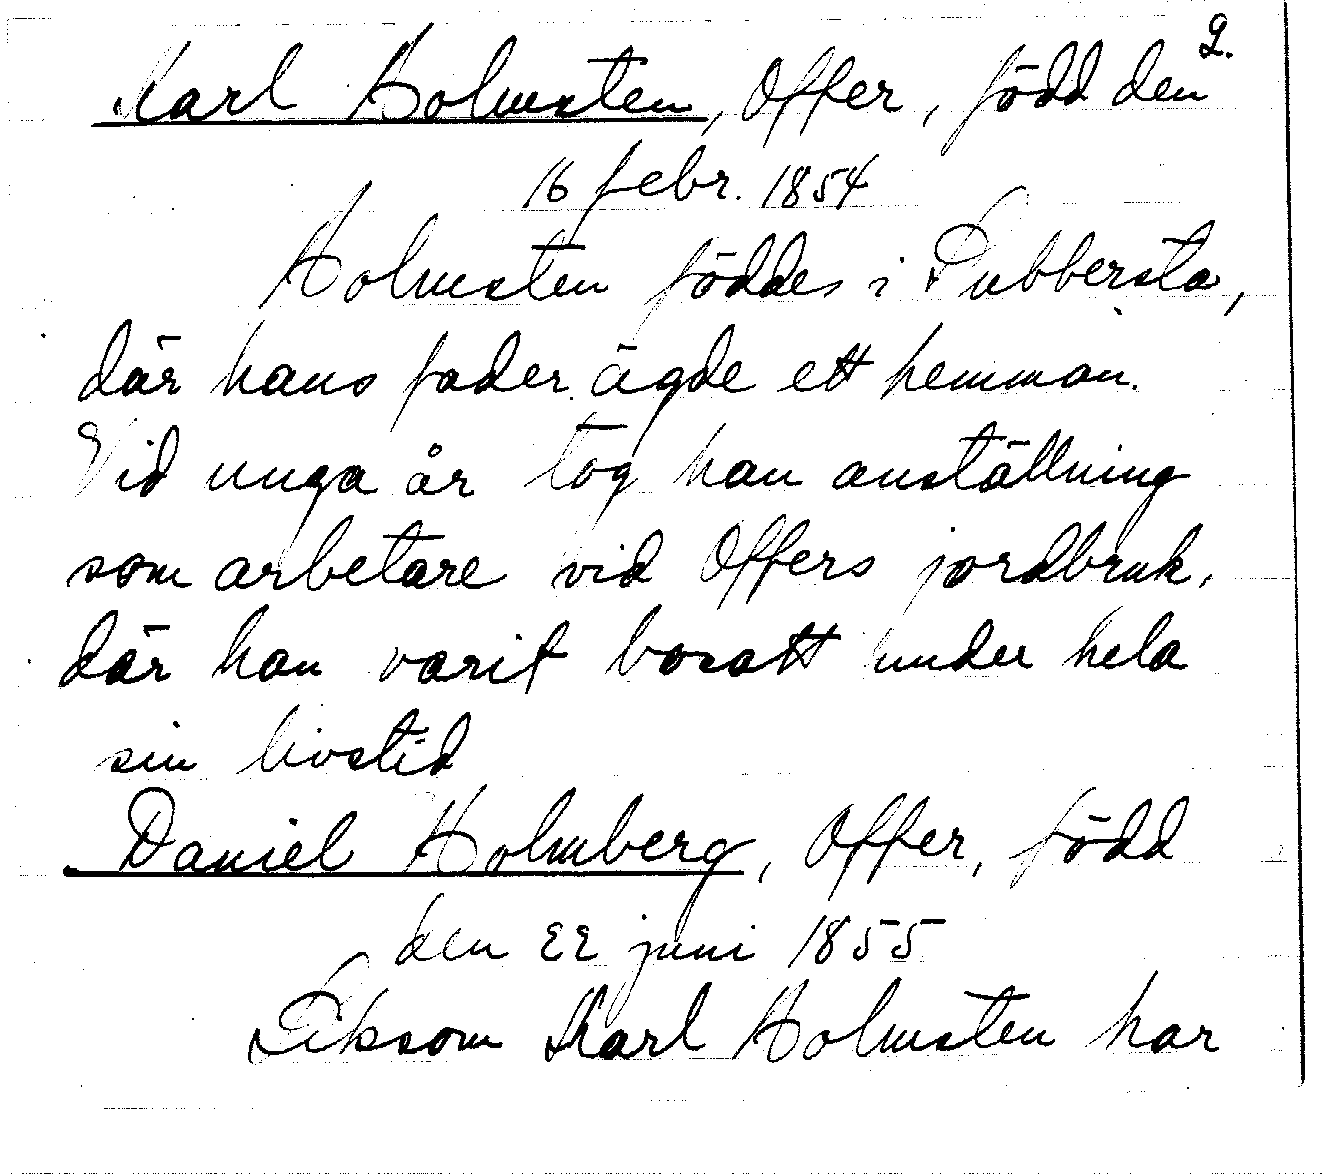 2.
Karl Holmsten, Offer, född den
16 febr. 1854
Holmsten föddes i Tubbersta,
där hans fader ägde ett hemman.
Vid unga år tog han anställning
som arbetare vid Offers jordbruk,
där han varit bosatt under hela
sin livstid
Daniel Holmberg, Offer, född
den 22 juni 1855
Liksom Karl Holmsten har